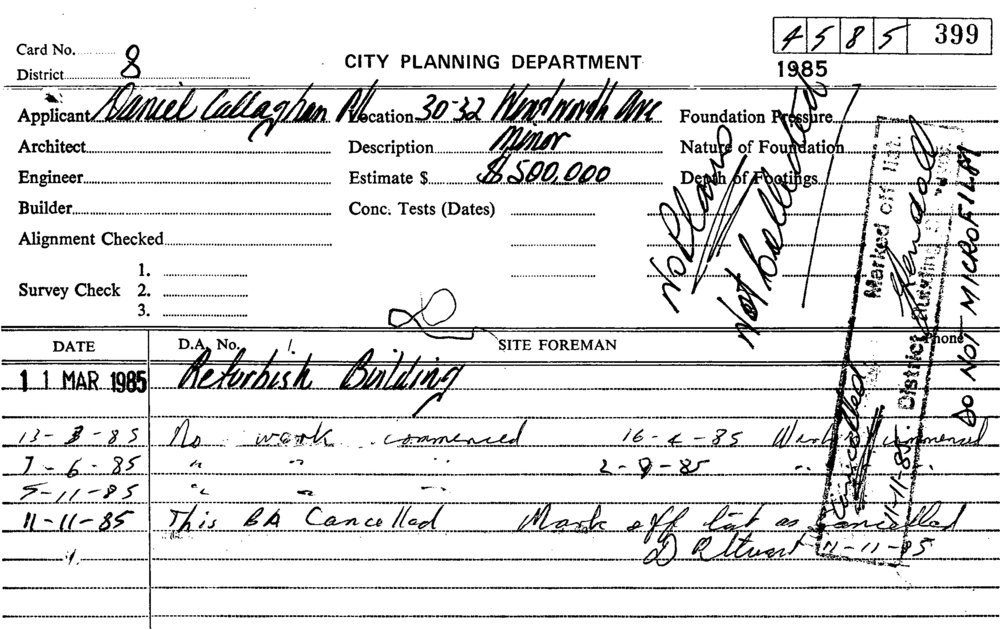 4 5 8 5 399
Card No. 8
CITY PLANNING DEPARTMENT
1985
District
Applicant Daniel Callaghan P/L Location 30-32 Wentworth Ave Foundation Pressure
Architect Description Minor Nature of Foundation
Engineer Estimate $ $500,000 Depth of Footings
Builder Conc. Tests (Dates)
Alignment Checked
1.
Survey Check 2.
3.
No Plans
Not Collected
DATE D.A. No. SITE FOREMAN Phone
11 MAR 1985 Refurbish Building
13-3-85 No work commenced 16-4-85 Work commenced
7-6-85 " " " 2-9-85 " "
5-11-85 " " "
11-11-85 This BA Cancelled Mark off list as cancelled
11-11-85
Cancelled
Marked off list.
District
11-11-85
DO NOT MICROFILM